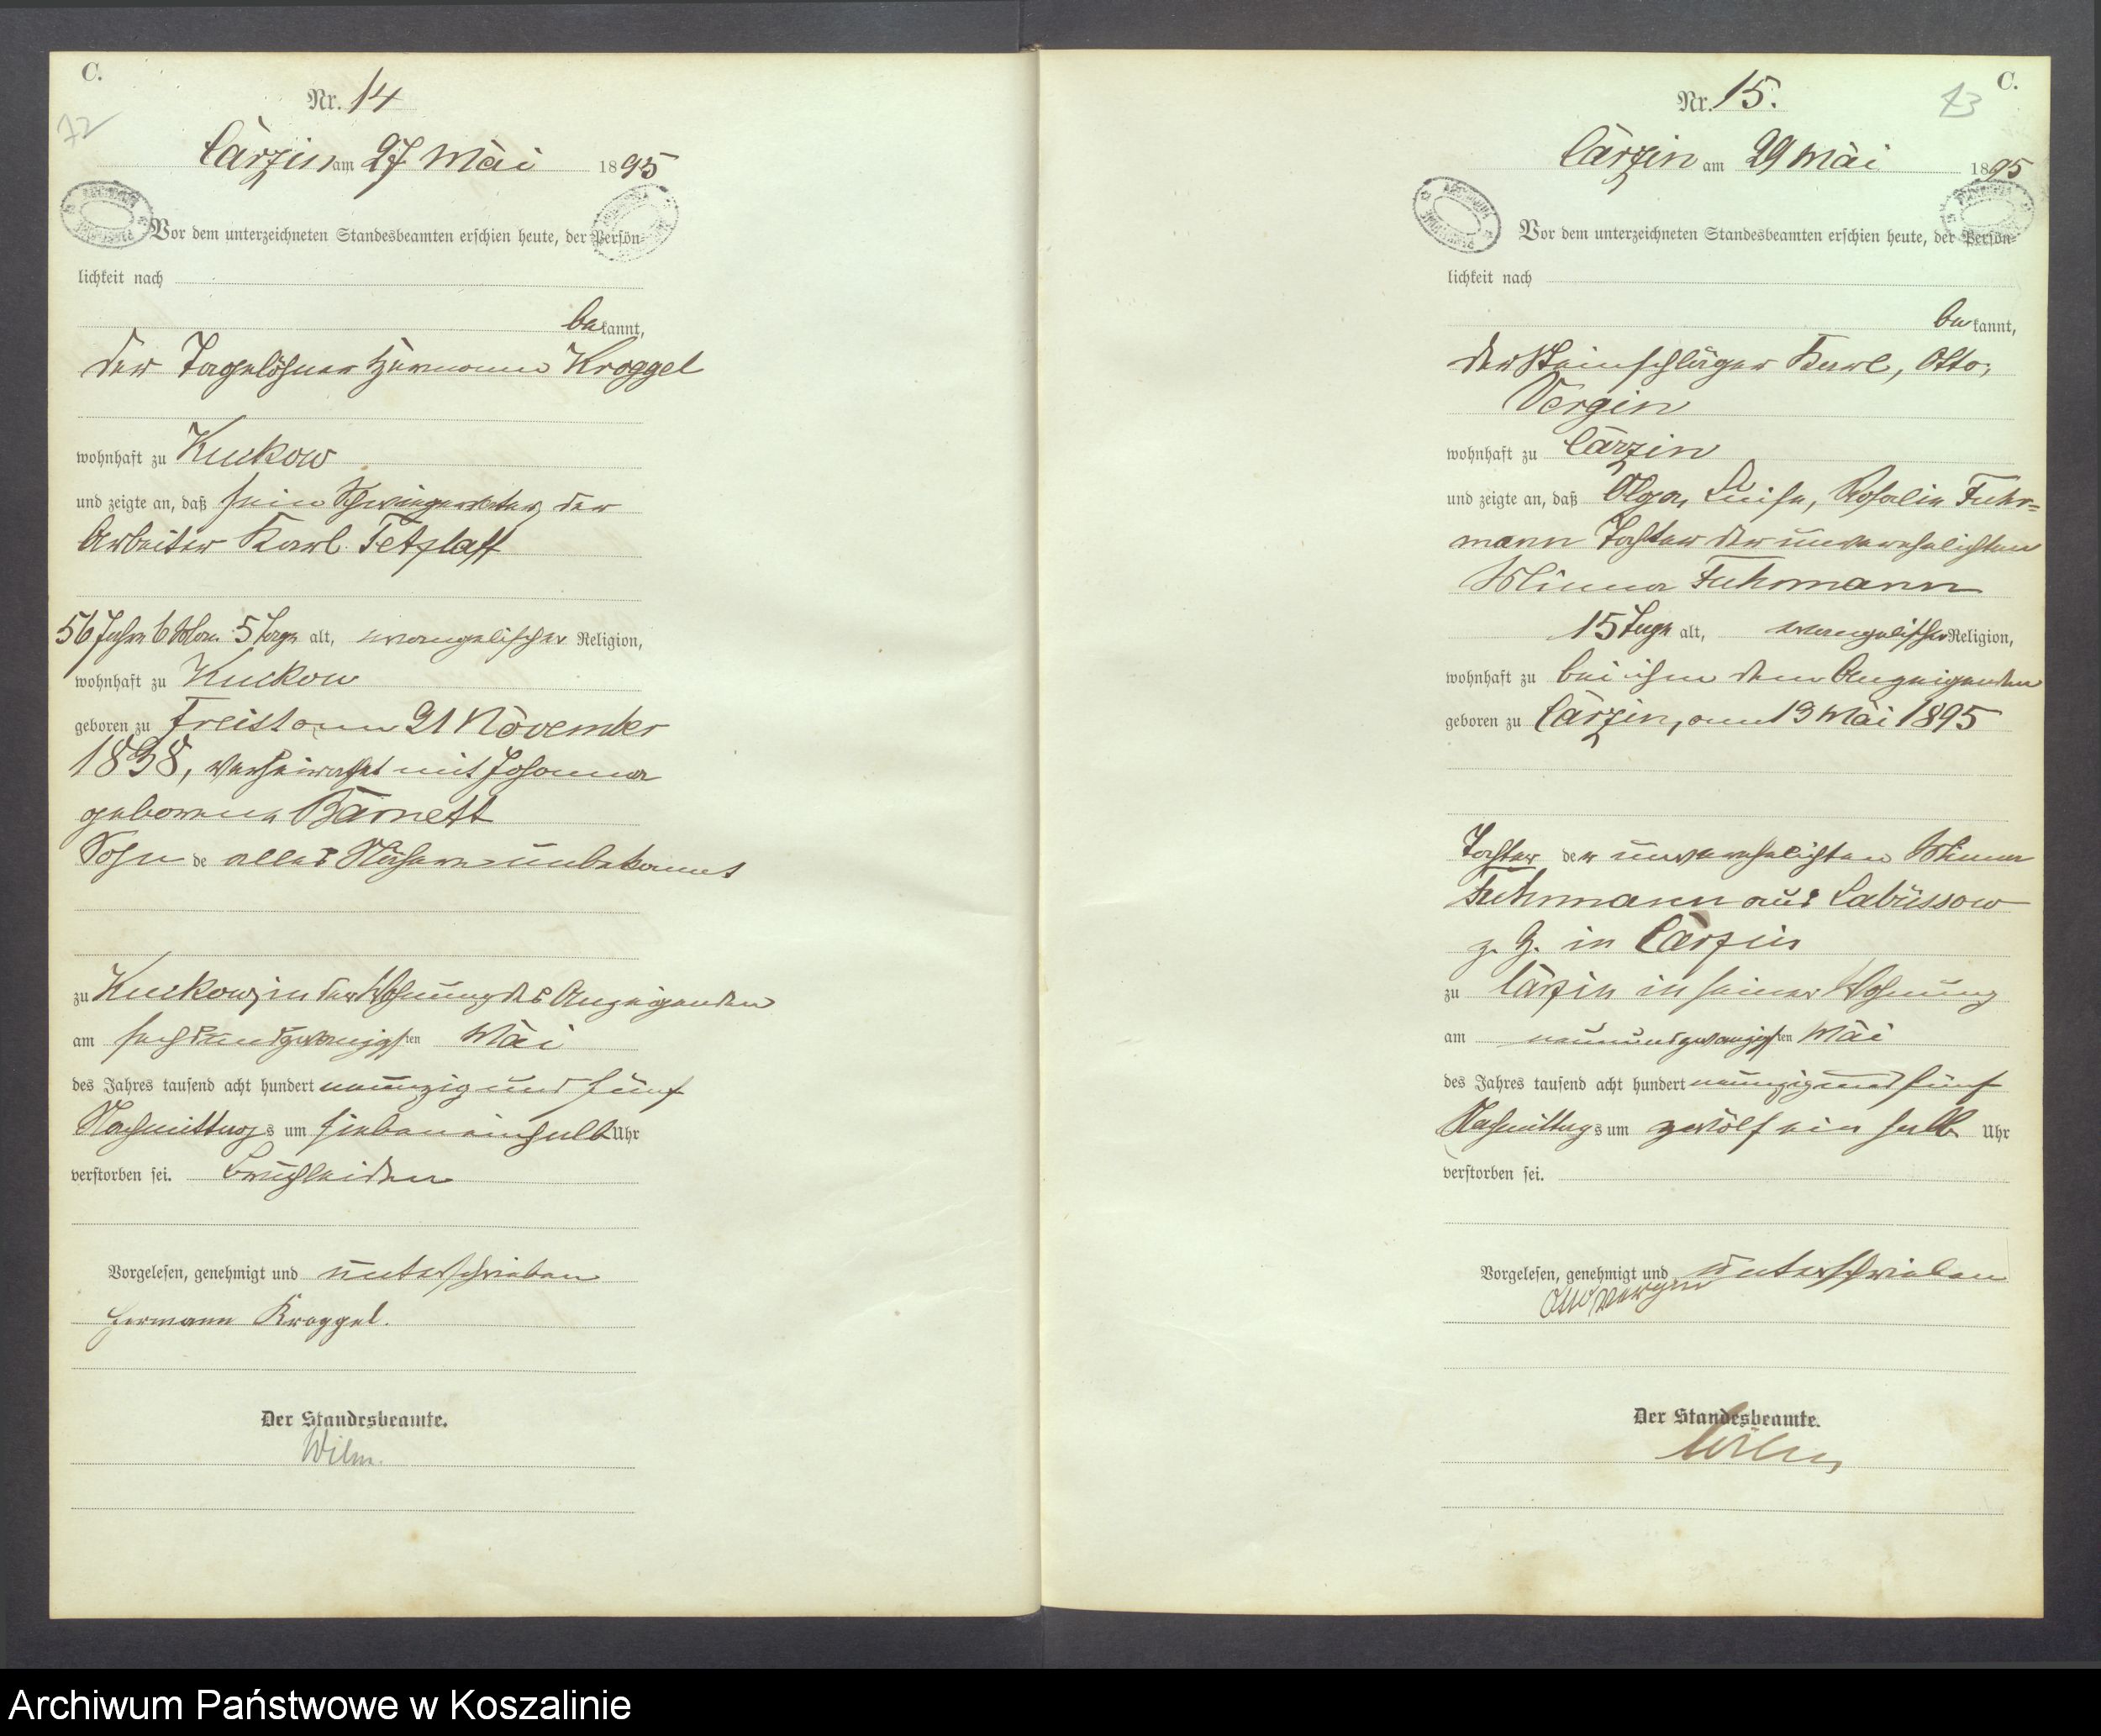 C.
72
Nr. 14
Carzin am 27 Mai 1895
Vor dem unterzeichneten Standesbeamten erschien heute, der Persön-
lichkeit nach
bekannt,
der Tagelöhner Hermann Kroggel
wohnhaft zu Kuckow
und zeigte an, daß sein Schwiegervater, der
Arbeiter Karl Tetzlaff
56 Jahre 6 Mon. 5 Tage alt, evangelischer Religion,
wohnhaft zu Kuckow
geboren zu Freist am 21 November
1838, verheirathet mit Johanna
geborene Barnett
Sohn de alles Nähere unbekannt
zu Kuckow, in der Wohnung des Anzeigenden
am sechsundzwanzigsten Mai
des Jahres tausend acht hundert neunzig und fünf
Nachmittags um sieben einhalb Uhr
verstorben sei. Bruchleiden
Vorgelesen, genehmigt und unterschrieben
Hermann Kroggel.
Der Standesbeamte.
Wilm.
C.
73
Nr. 15.
Carzin am 29 Mai 1895
Vor dem unterzeichneten Standesbeamten erschien heute, der Persön-
lichkeit nach
bekannt,
der Steinschläger Karl, Otto,
Vergin
wohnhaft zu Carzin
und zeigte an, daß Olga, Luise, Rosalie Fuhr-
mann Tochter der unverehelichten
Minna Fuhrmann
15 Tage alt, evangelischer Religion,
wohnhaft zu bei ihm dem Anzeigenden
geboren zu Carzin, am 13 Mai 1895
Tochter der unverehelichten Minna
Fuhrmann aus Labüssow
z. Z. in Carzin
zu Carzin in seiner Wohnung
am neunundzwanzigsten Mai
des Jahres tausend acht hundert neunzig und fünf
Nachmittags um zwölf ein halb Uhr
verstorben sei.
Vorgelesen, genehmigt und unterschrieben
Otto Vergin
Der Standesbeamte.
Wilm
Archiwum Państwowe w Koszalinie